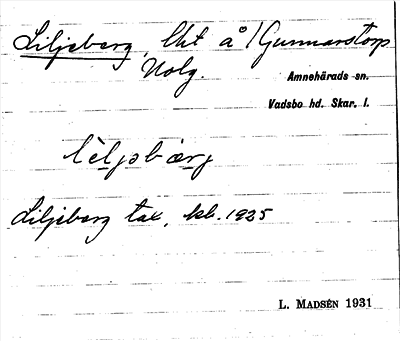 Liljeberg, lht å 1/Gunnarstorp
Nolg.
Amnehärads sn.
Vadsbo hd. Skar. l.
lèljobærj
Liljeberg tax, kb. 1925
L. MADSÉN 1931